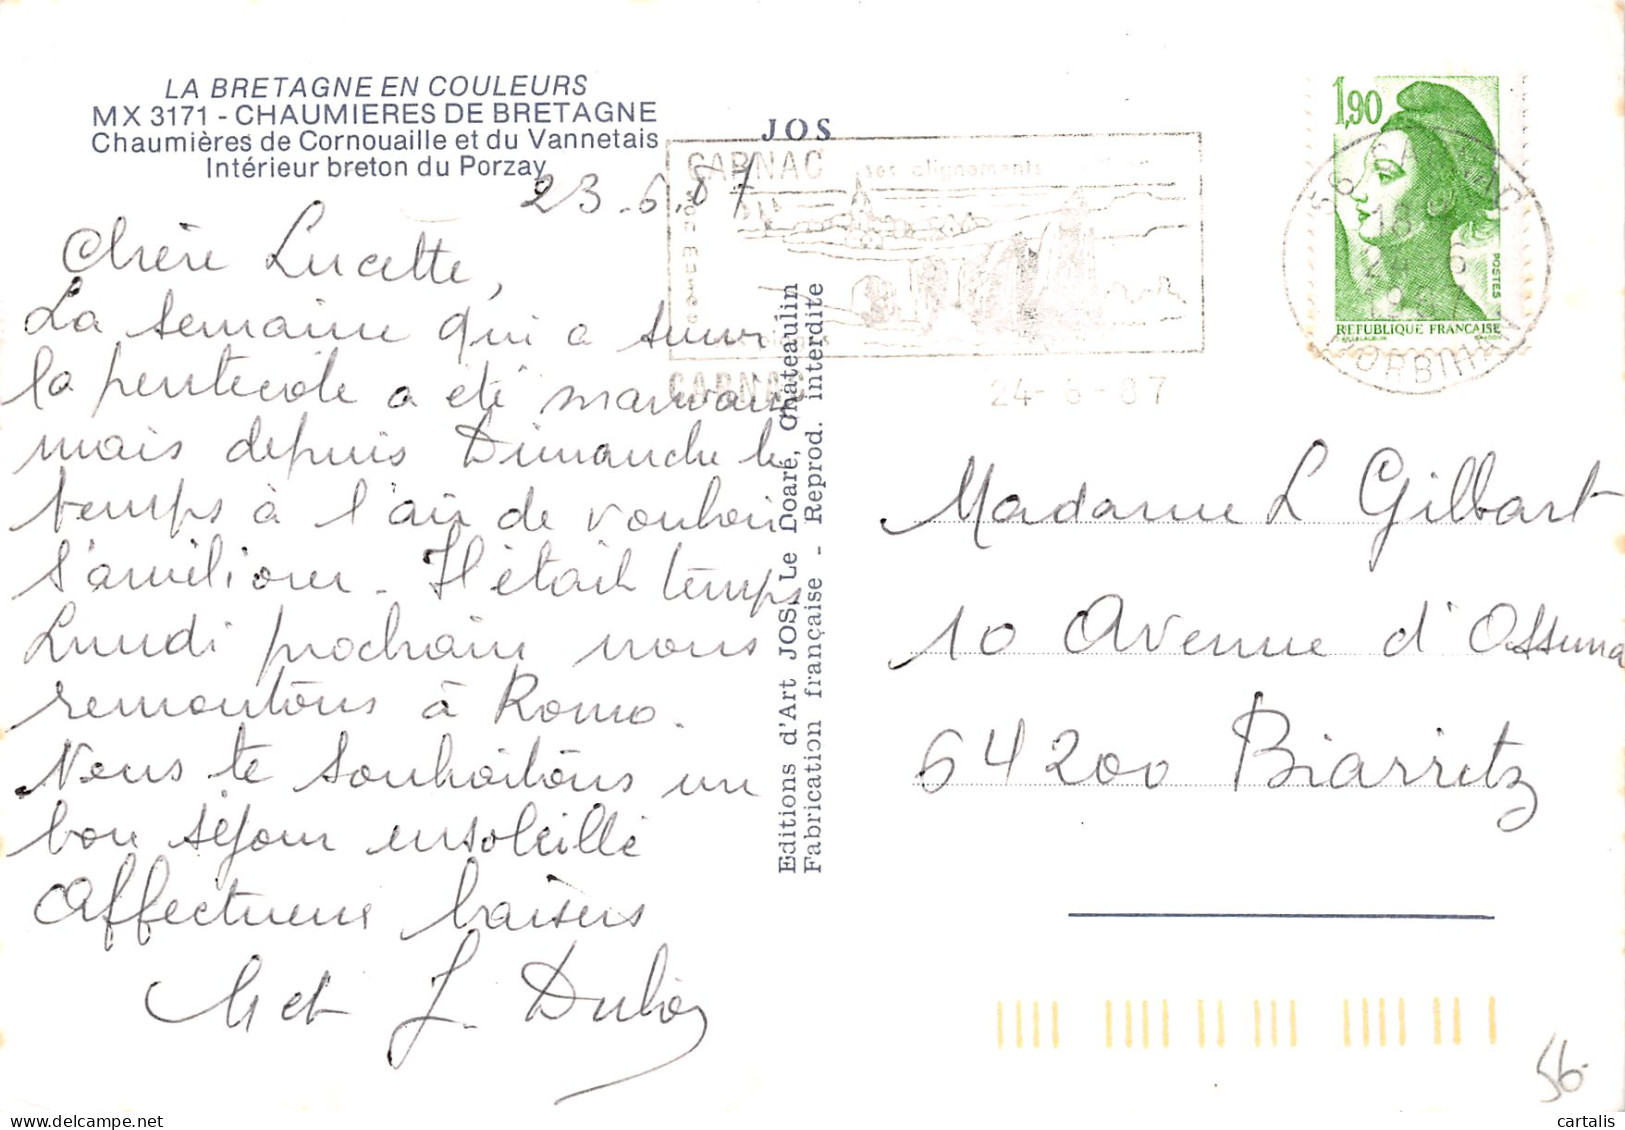 LA BRETAGNE EN COULEURS
MX 3171 - CHAUMIERES DE BRETAGNE
Chaumières de Cornouaille et du Vannetais
Intérieur breton du Porzay
JOS
CARNAC ses alignements
son musée
CARNAC
24-6-87
1,90
POSTES
REPUBLIQUE FRANCAISE
56 CARNAC
18
24 6
1987
MORBIHAN
23.6.87
Chère Lucette,
La semaine qui a suivi
la pentecote a été mauvaise
mais depuis Dimanche le
temps à l'air de vouloir
s'améliorer. Il était temps
Lundi prochain nous
remontons à Romo.
Nous te souhaitons un
bon séjour ensoleillé
Affectueux baisers
M et J. Dubois
Editions d'Art JOS Le Doaré, Chateaulin
Fabrication française - Reprod. interdite
Madame L Gilbart
10 Avenue d'Ossuna
64200 Biarritz
56-
cartalis